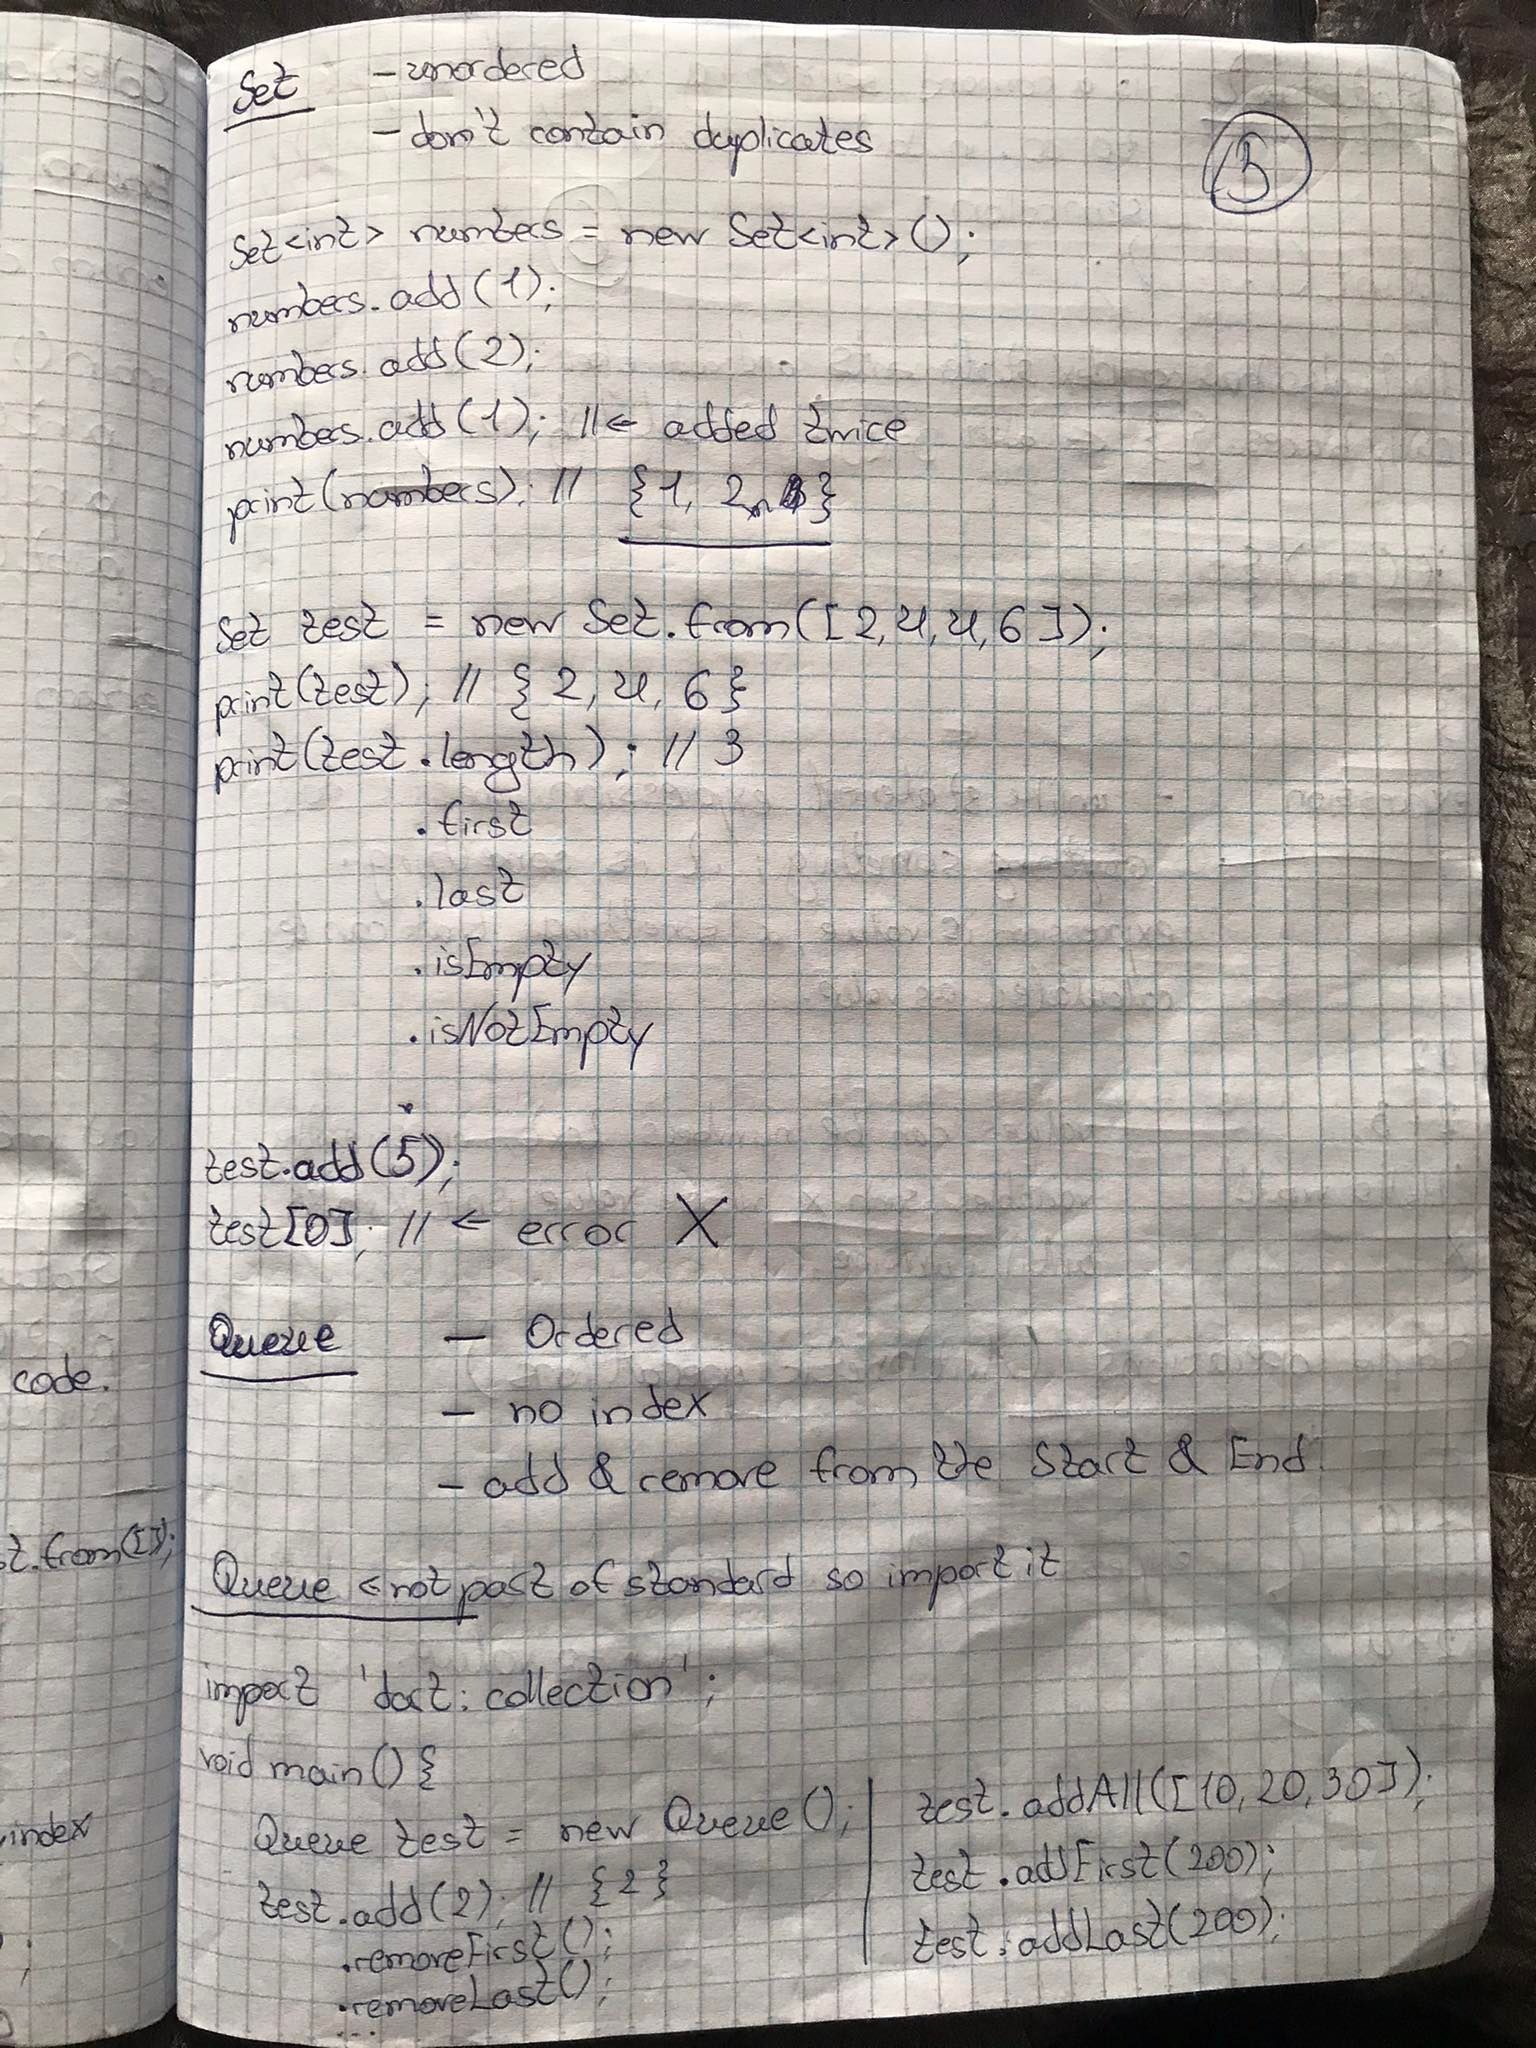 Set - unordered
- don't contain duplicates
Set<int> numbers = new Set<int>();
numbers.add(1);
numbers.add(2);
numbers.add(1); //← added twice
print(numbers); // {1, 2}
Set test = new Set.from([2,4,4,6]);
print(test); // {2, 4, 6}
print(test.length); // 3
.first
.last
.isEmpty
.isNotEmpty
test.add(5);
test[0]; // ← error X
Queue - Ordered
- no index
- add & remove from the Start & End.
Queue ← not part of standard so import it
import 'dart:collection';
void main() {
Queue test = new Queue();
test.add(2); // {2}
.removeFirst();
.removeLast();
...
test.addAll([10,20,30]);
test.addFirst(200);
test.addLast(200);
code.
t.from([]);
index
;